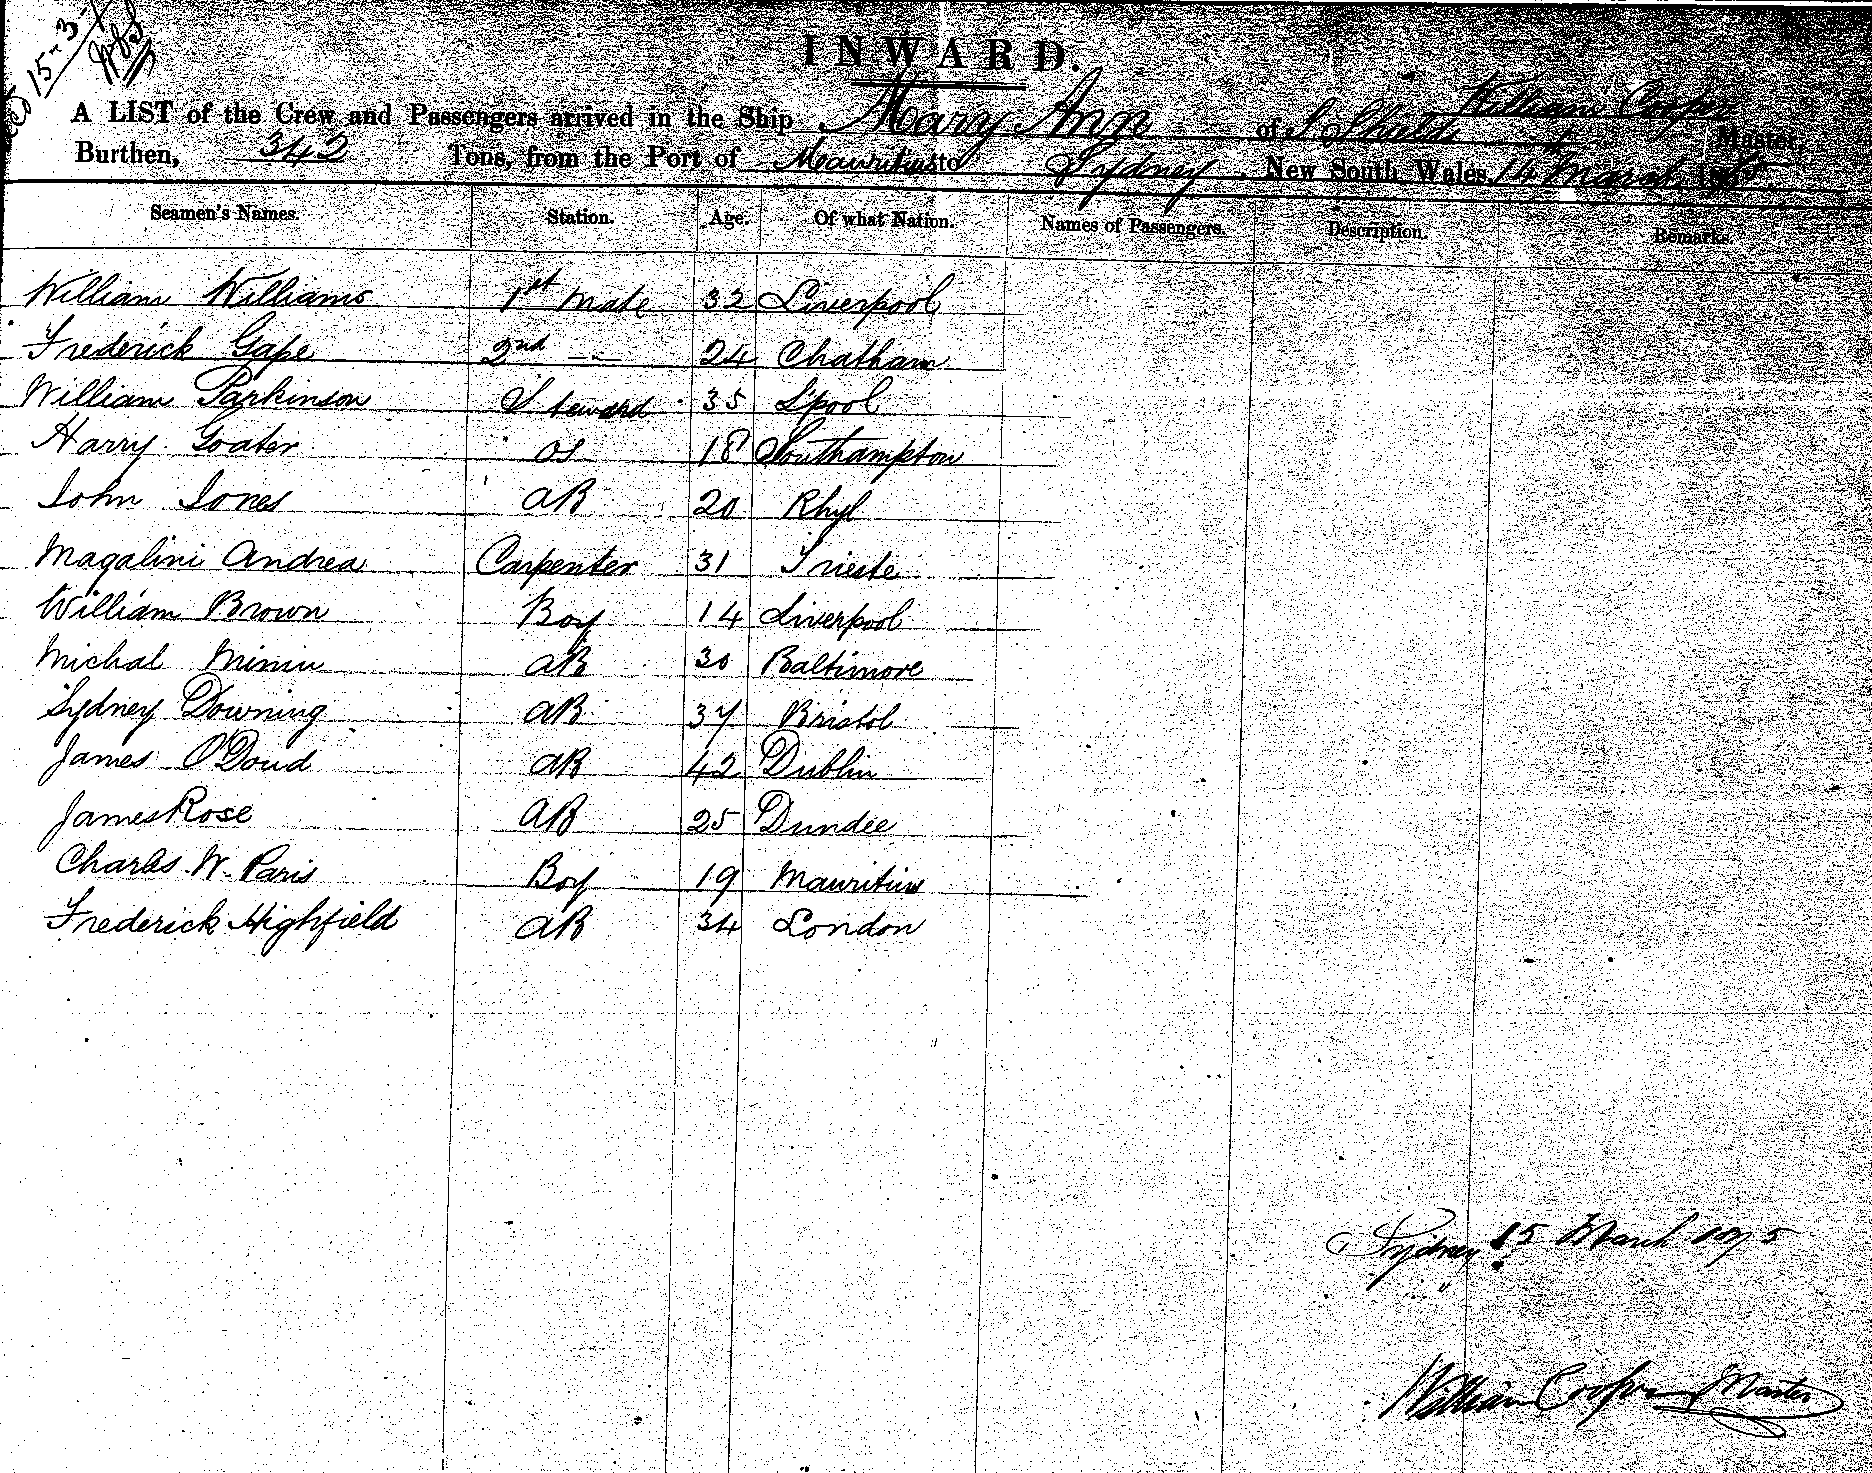 15-3-
INWARD.
A LIST of the Crew and Passengers arrived in the Ship Mary Ann of S Shields William Cooper Master,
Burthen, 342 Tons, from the Port of Mauritius to Sydney, New South Wales, 14 March 18
Seamen's Names. Station. Age. Of what Nation. Names of Passengers. Description. Remarks.
William Williams 1st Mate 32 Liverpool
Frederick Gape 2nd -"- 24 Chatham
William Parkinson Steward 35 L'pool
Harry Goater OS 18 Southampton
John Jones AB 20 Rhyl
Magalini Andrea Carpenter 31 Trieste
William Brown Boy 14 Liverpool
Michal AB 30 Baltimore
Sydney Downing AB 37 Bristol
James O'Doud AB 42 Dublin
James Rose AB 25 Dundee
Charles W. Paris Boy 19 Mauritius
Frederick Highfield AB 34 London
Sydney 15 March 1875
William Cooper Master